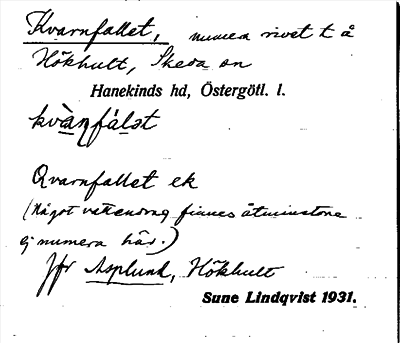 Kvarnfallet, numera rivet t å
Hökhult, Skeda sn
Hanekinds hd, Östergötl. l.
kvà̀ṇfál𝑠t
Qvarnfallet ek
(Något vattendrag finnes åtminstone
ej numera här.)
Jfr Asplund, Hökhult
Sune Lindqvist 1931.